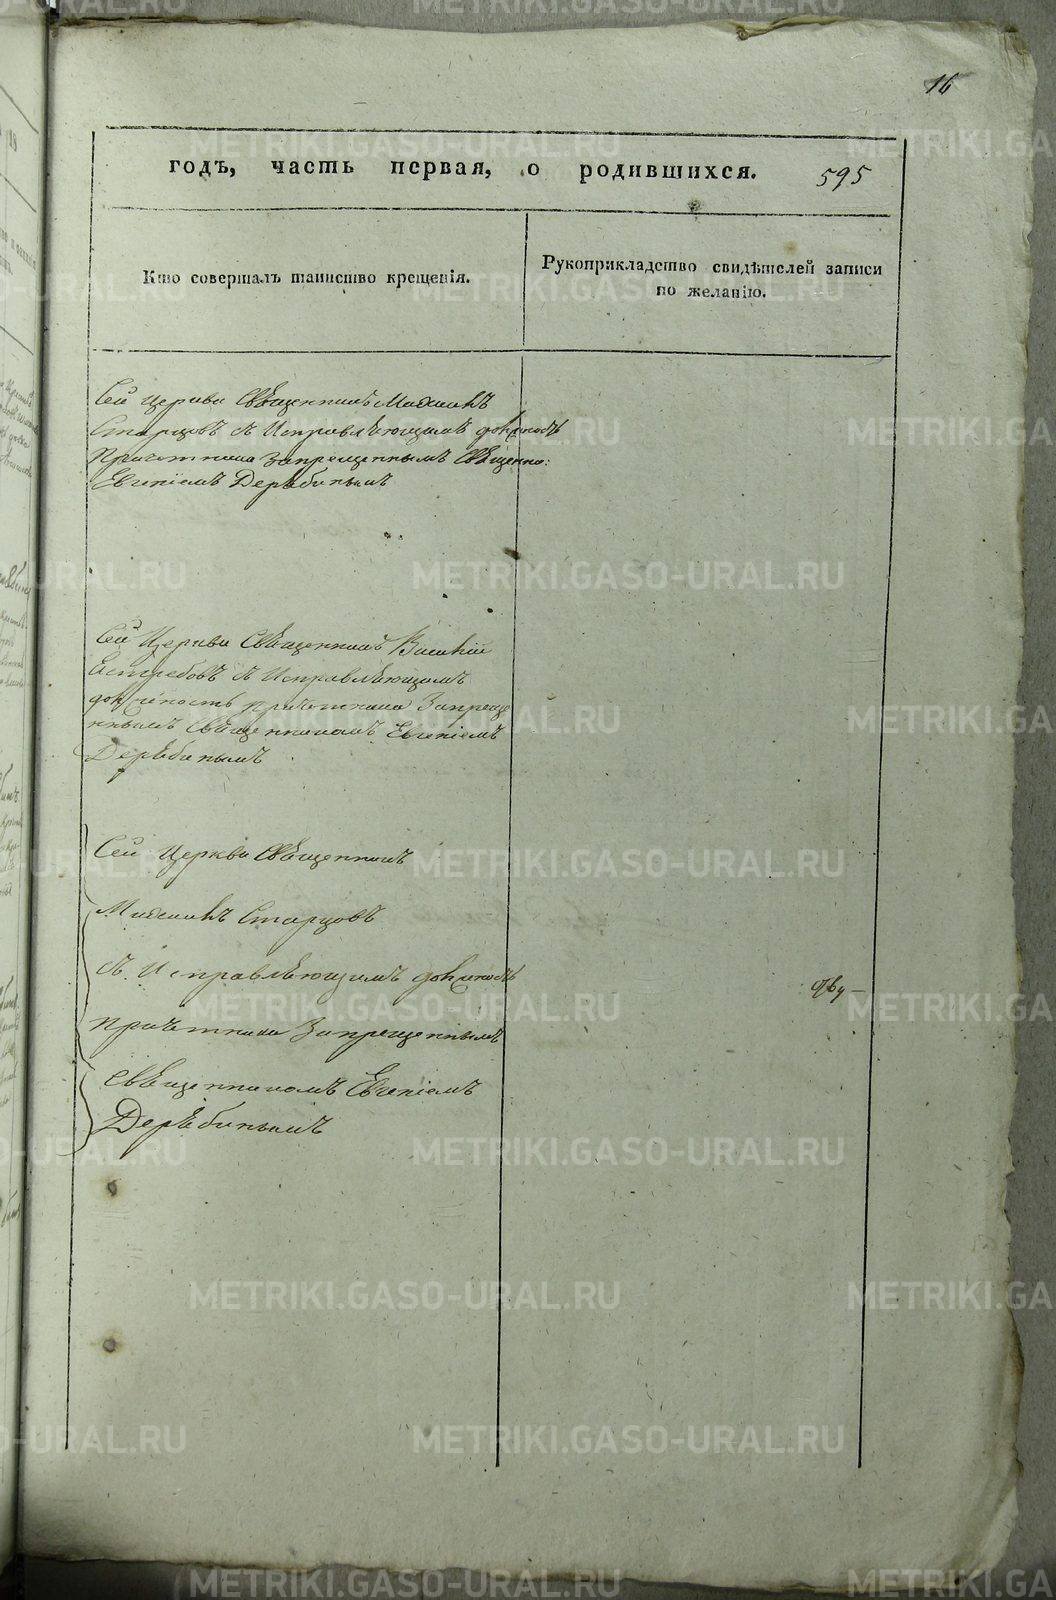 16
годъ, часть первая, о родившихся. 595
Кто совершалъ таинство крещенія.
Рукоприкладство свидѣтелей записи
по желанію.
Сей Церкви Священникъ Михаилъ
Старцовъ съ Исправляющимъ должность
Причетника Запрещеннымъ Священно:
Евгеніемъ Дерябинымъ
Сей Церкви Священникъ Василій
Ястребовъ съ Исправляющимъ
должность причетника Запреще
ннымъ Священникомъ Евгеніемъ
Дерябинымъ
Сей Церкви Священникъ
Михаилъ Старцовъ
съ Исправляющимъ должность
причетника Запрещеннымъ
священникомъ Евгеніемъ
Дерябинымъ
METRIKI.GASO-URAL.RU